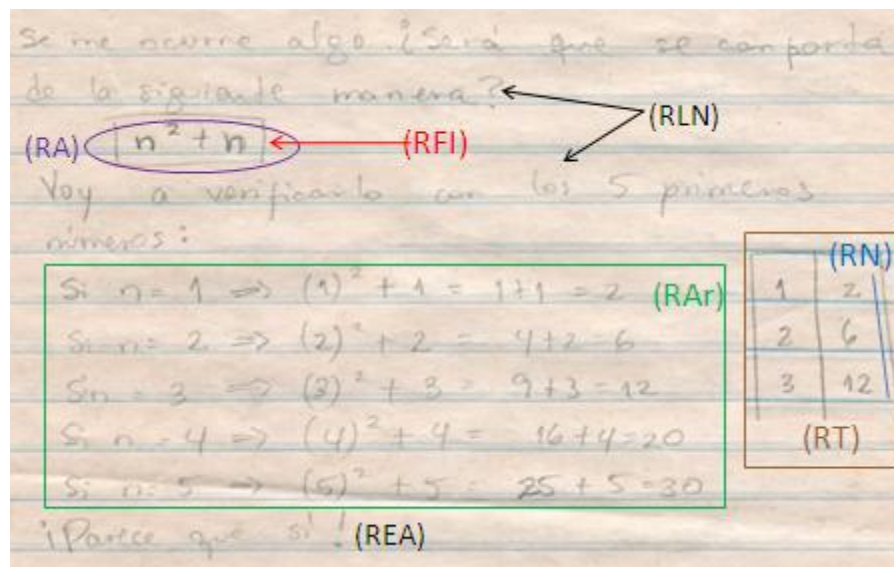 Se me ocurre algo. ¿Será que se comporta
de la siguiente manera?
(RLN)
(RA) n² + n (RFI)
Voy a verificarlo con los 5 primeros
números:
Si n = 1 ⇒ (1)² + 1 = 1+1 = 2 (RAr)
Si n = 2 ⇒ (2)² + 2 = 4+2=6
Si n = 3 ⇒ (3)² + 3 = 9+3=12
Si n = 4 ⇒ (4)² + 4 = 16+4=20
Si n = 5 ⇒ (5)² + 5 = 25+5=30
¡Parece que si! (REA)
(RN)
1 2
2 6
3 12
(RT)